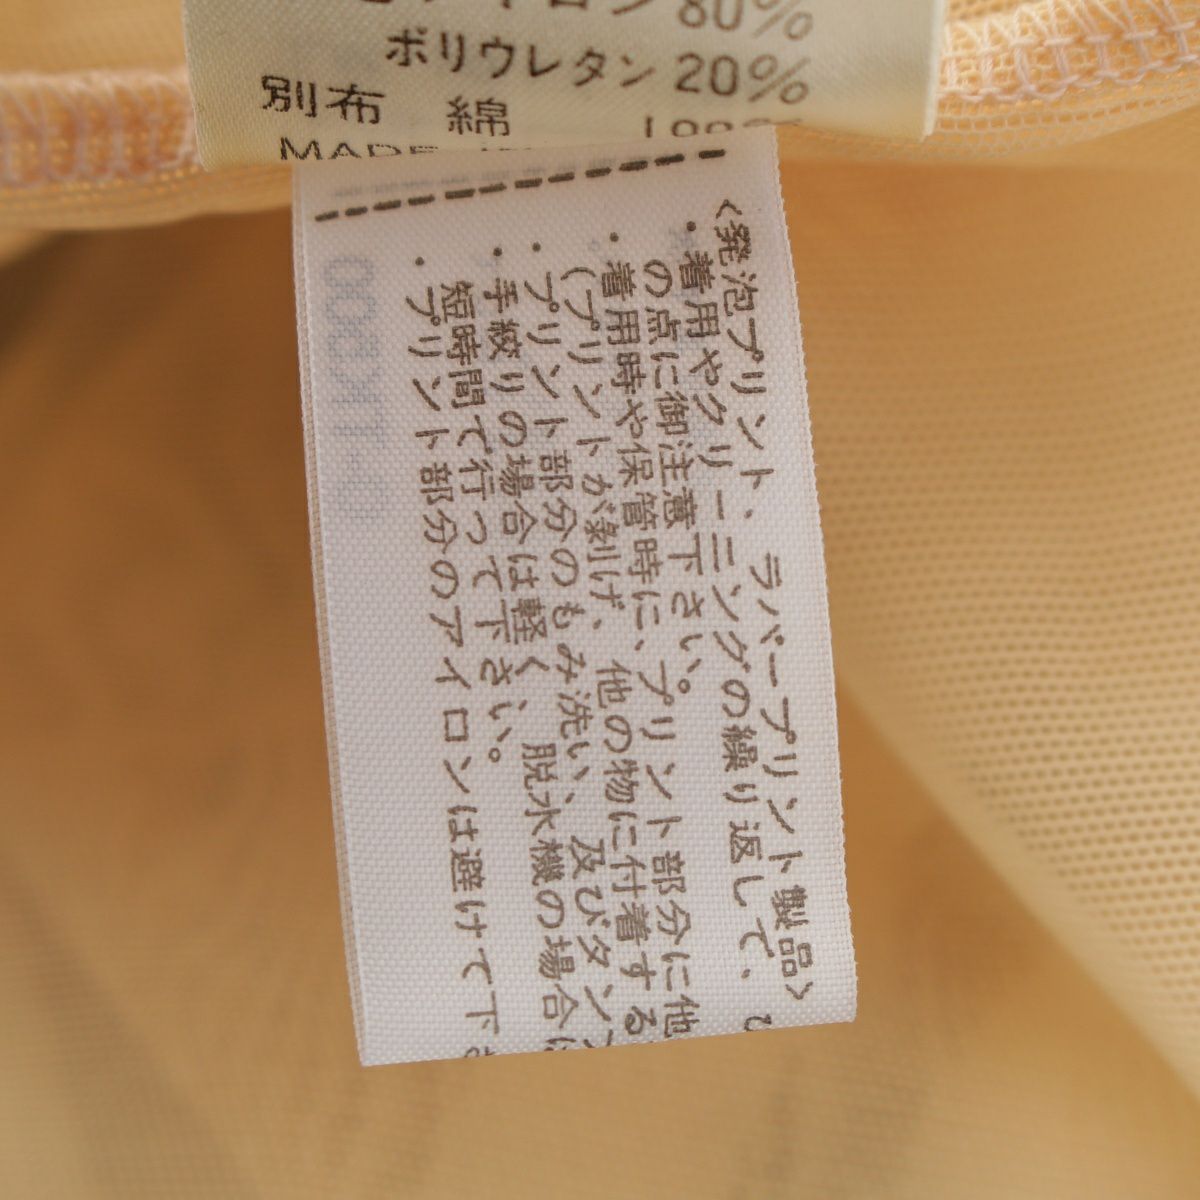 80%
ポリウレタン 20%
別布 綿
MADE
<発泡プリント、ラバープリント製品>
・着用やクリーニングの繰り返しで、ひ
の点に御注意下さい。
・着用時や保管時に、プリント部分に他
(プリントが剥げ、他の物に付着する
・プリント部分のもみ洗い、及びタンブ
・手絞りの場合は軽く、脱水機の場合は
短時間で行って下さい。
・プリント部分のアイロンは避けて下さ